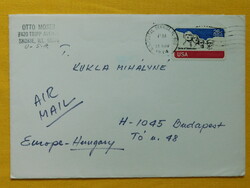 OTTO MOSER
SKOKIE, ILL.
USA
KUKLA MIHÁLYNÉ
AIR
MAIL
H-1045 Budapest
Europe-Hungary
Tó u. 48